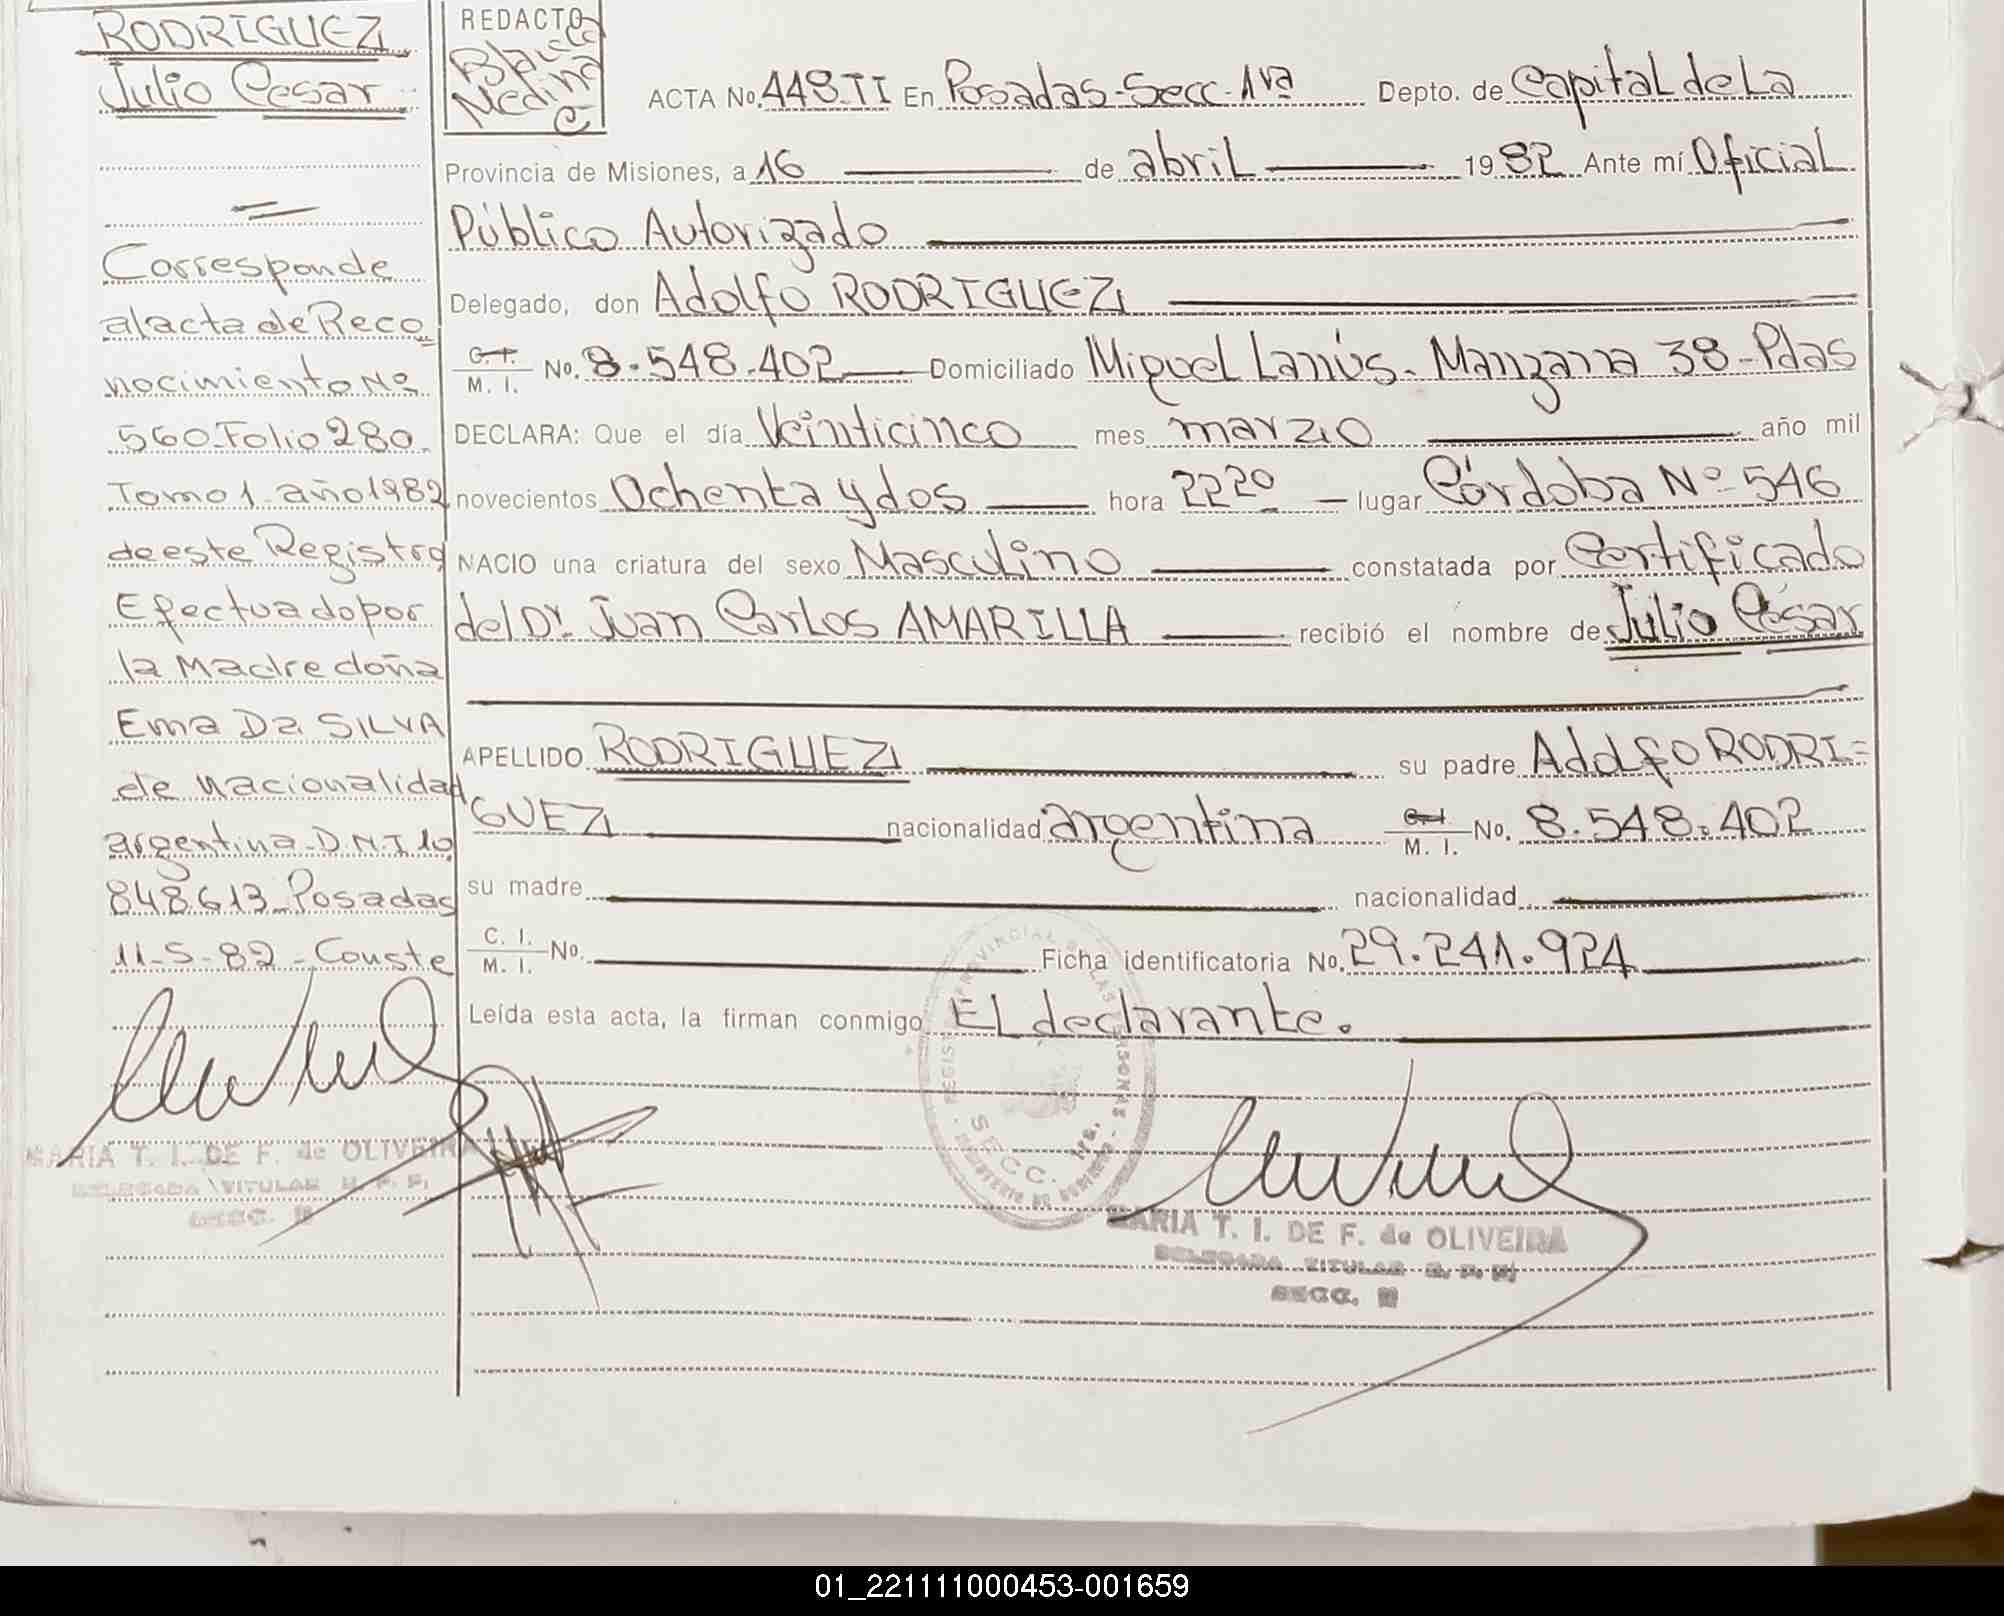 RODRIGUEZ
Julio Cesar
Corresponde
al acta de Reco
nocimiento Nº
560 Folio 280.
Tomo 1 año 1982
de este Registro
Efectuado por
la Madre doña
Ema Da SILVA
de nacionalidad
argentina D.N.I 10.
848.613 Posadas
11-5-82 - Conste
MARIA T. I. DE F. de OLIVEIRA
DELEGADA TITULAR R. P. P.
SECC.
REDACTO
Blanca
Medina
de
ACTA No. 448 TI En Posadas-Secc-1ra Depto. de Capital de La
Provincia de Misiones, a 16 de abril 1982 Ante mí Oficial
Público Autorizado
Delegado, don Adolfo RODRIGUEZ
C. I.
M. I. No. 8.548.402 Domiciliado Miguel Lanús. Manzana 38-Pdas
DECLARA: Que el día Veinticinco mes marzo año mil
novecientos Ochenta y dos hora 22 20 lugar Córdoba Nº 546
NACIO una criatura del sexo Masculino constatada por Certificado
del Dr. Juan Carlos AMARILLA recibió el nombre de Julio César
APELLIDO RODRIGUEZ su padre Adolfo RODRI=
GUEZ nacionalidad argentina C. I.
M. I. No. 8.548.402
su madre nacionalidad
C. I.
M. I. No. Ficha identificatoria No. 29.241.924
Leída esta acta, la firman conmigo El declarante.
REGISTRO PROVINCIAL DE LAS PERSONAS
SECC. 1ra.
MINISTERIO DE GOBIERNO
MARIA T. I. DE F. de OLIVEIRA
DELEGADA TITULAR R. P. P.
SECC.
01_221111000453-001659